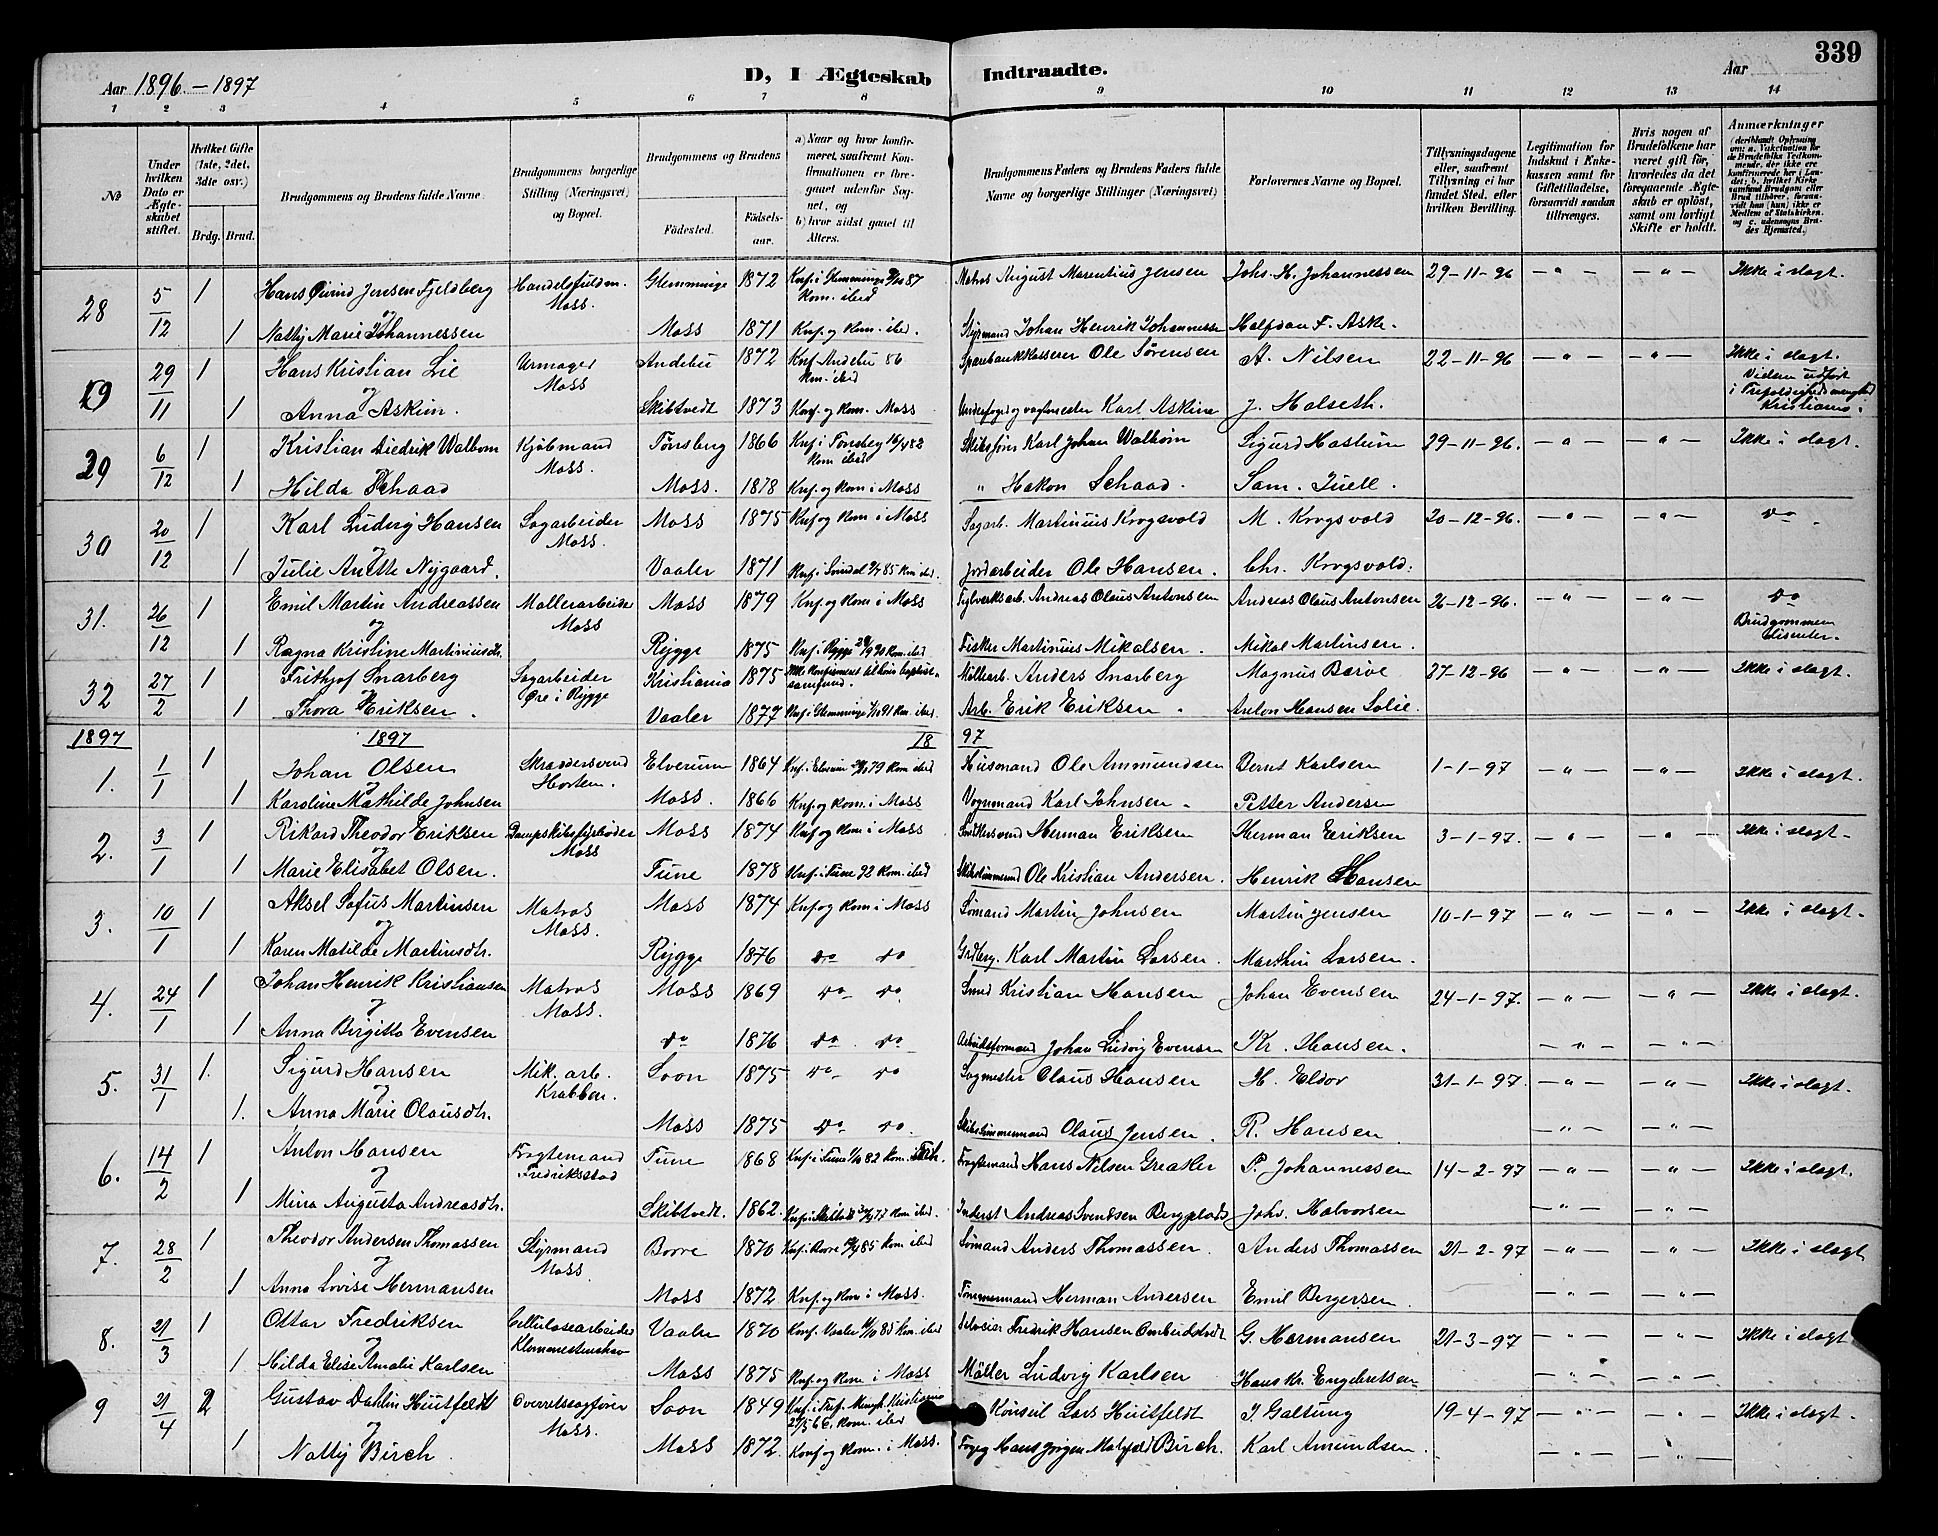 339
Aar 1896-1897 D, I Ægteskab Indtraadte. Aar
1 2 3 4 5 6 7 8 9 10 11 12 13 14
No
Under hvilken Dato er Ægteskabet stiftet.
Hvilket Gifte (1ste, 2det, 3die osv.) Brdg. Brud.
Brudgommens og Brudens fulde Navne.
Brudgommens borgerlige Stilling (Næringsvei) og Bopæl.
Brudgommens og Brudens Fødested. Fødselsaar.
a) Naar og hvor konfirmeret, saafremt Konfirmationen er foregaaet udenfor Sognet, og b) hvor sidst gaaet til Alters.
Brudgommens Faders og Brudens Faders fulde Navne og borgerlige Stillinger (Næringsvei)
Forlovernes Navne og Bopæl.
Tillysningsdagene eller, saafremt Tillysning ei har fundet Sted, efter hvilken Bevilling.
Legitimation for Indskud i Enkekassen samt for Giftetilladelse, forsaavidt saadan tiltrænges.
Hvis nogen af Brudefolkene har været gift før, hvorledes da det foregaaende Ægteskab er opløst, samt om lovligt Skifte er holdt.
Anmærkninger
28 5/12 1 Hans Øivind Jensen Fjeldberg Handelsfuldm. Moss. Glemminge 1872 Knf. i Glemminge 87 Kom. ibid Matros August Marentius Jensen Johs. H. Johannessen 29-11-96 -"- -"- Ikke i slægt.
og
1 Nally Marie Johannessen Moss 1871 Knf. og kom. ibd. Styrmand Johan Henrik Johannessen Halfdan F. Aske.
29 29/11 1 Hans Kristian Lie Urmager Moss Andebu 1872 Knf Andebu 86 Kom. ibid Sparebankkasserer Ole Sørensen A. Nilsen 22-11-96 -"- -"- Ikke i slægt.
og
1 Anna Askim. Skibtvedt 1873 Knf. og kom. Moss Underfoged og vagtmester Karl Askim J. Halseth. Kristiania.
29 6/12 1 Kristian Diedrik Walbom Kjøbmand Moss. Tønsberg 1866 Knf. i Tønsberg 16/4 82 Kom ibid Skibsfører Karl Johan Walbom Sigurd Hastum 29-11-96. -"- -"- Ikke i slægt.
1 Hilda Schaad Moss. 1878 Knf. og kom i Moss " Hakon Schaad. Sam. Juell.
30 20/12 1 Karl Ludvig Hansen Sagarbeider Moss. Moss 1875 Knf og kom i Moss Sagarb. Martinius Krogsvold M. Krogsvold 20-12-96. -"- -"- do
og
1 Julie Anette Nygaard. Vaaler 1871 Knf. i Svindal 85 Kom ibid. Jordarbeider Ole Hansen. Chr. Krogsvold.
31. 26/12 1 Emil Martin Andreassen Møllerarbeider Moss Moss 1879 Knf og kom i Moss Andreas Olaus Antonsen Andreas Olaus Antonsen 26-12-96. -"- -"- do
og Brudgommen dissenter.
1 Ragna Kristine Martiniusdtr. Rygge 1875 Knf. i Rygge 90 Kom. ibid Fisker Martinius Mikalsen. Mikal Martinsen.
32 27/2 1 Frithjof Snarberg Sagarbeider Øre i Rygge Kristiania 1875 Ikke konfirmeret Møllearb. Anders Snarberg Magnus Barøe 27-12-96 -"- -"- Ikke i slægt.
1 Thora Eriksen. Vaaler 1877 Knf. i Glemminge 91 Kom. ibid. Arb. Erik Eriksen. Anton Hansen Solie.
1897 1897 1897
1. 1/1 1 Johan Olsen Skræddersvend Horten. Elverum 1864 Knf. i Elverum 79 Kom ibid Husmand Ole Ammundsen Bernt Karlsen 1-1-97 -"- -"- Ikke i slægt.
og
1 Karoline Mathilde Johnsen Moss. 1866 Knf. og kom. i Moss Vognmand Karl Johnsen. Petter Andersen
2. 3/1 1 Rikard Theodor Eriksen Dampskibsfyrbøder Moss Moss 1874 Knf og kom. i Moss Herman Eriksen Herman Eriksen 3-1-97. -"- -"- Ikke i slægt-
og
1 Marie Elisabet Olsen. Tune 1878 Knf. i Tune 92 Kom. ibid Skibstømmermand Ole Kristian Andersen. Henrik Hansen
3. 10/1 1 Aksel Sofus Martinsen Matros Moss. Moss 1874 Knf og kom i Moss Sømand Martin Johnsen Martin Jensen 10-1-97 -"- -"- Ikke i slægt.
og
1 Karen Matilde Martinsdtr. Rygge 1876 do do Grdbrg. Karl Martin Larsen. Marthin Larsen.
4. 24/1 1 Johan Henrik Kristiansen Matros Moss. Moss 1869 do do Smed Kristian Hansen Johan Evensen 24-1-97. -"- -"- Ikke i slægt.
og
1 Anna Birgitta Evensen do 1876 do. do Arbeidsformand Johan Ludvig Evensen Kr. Hansen. -"- -"-
5. 31/1 1. Sigurd Hansen Mek. arb. Krabben. Soon 1875 do do Sagmester Olaus Hansen H. Eldor 31-1-97. -"- -"- Ikke i slægt.
og
1. Anna Marie Olausdtr. Moss 1875 do do. Skibstømmermand Olaus Jensen. R. Hansen -"- -"-
6. 14/2 1 Anton Hansen Fragtemand Fredriksstad Tune 1868 Knf. i Tune 82 Kom. i Frh. Fragtemand Hans Nilsen Greaker P. Johannessen 14-2-97 -"- -"- Ikke i slægt.
og
1 Mina Augusta Andreasdtr. Skibtvedt. 1862. Knf. i Skibtvedt 77 Kom. ibid. Inderst Andreas Svendsen Bergplads Johs. Halvorsen -"- -"-
7. 28/2 1 Theodor Andersen Thomassen Styrmand Moss. Borre 1870 Knf. i Borre 85 Kom ibid Sømand Anders Thomassen. Anders Thomassen 21-2-97 -"- -"- Ikke i slægt
og
1 Anna Lovise Hermansen Moss 1872 Knf. og kom i Moss. Tømmermand Herman Andersen Emil Birgersen. -"- -"-
8. 21/3 1 Ottar Fredriksen Cellulosearbeider Klommestenshav Vaaler 1870 Konf. Vaaler 85 Kom. ibid Fredrik Hansen Ombudstvedt G. Hermansen 21-3-97 -"- -"- Ikke i slægt
og
1 Hilda Elise Amalie Karlsen Moss 1875 Knf og kom i Moss Møller Ludvig Karlsen Hans Kr. Engebretsen -"- -"-
9 21/4 2 Gustav Dahlin Huitfeldt Overretssagfører Moss. Soon 1849 Knf. i Tref. Mengh. Kristiania 66. Kom. ibid Konsul Lars Huitfeldt I. Galtung 19-4-97 -"- -"- Ikke i slægt.
og
1 Nally Birch Moss 1872. Konf og kom. i Moss. Hans Jørgen Birch. Karl Amundsen. -"- -"-